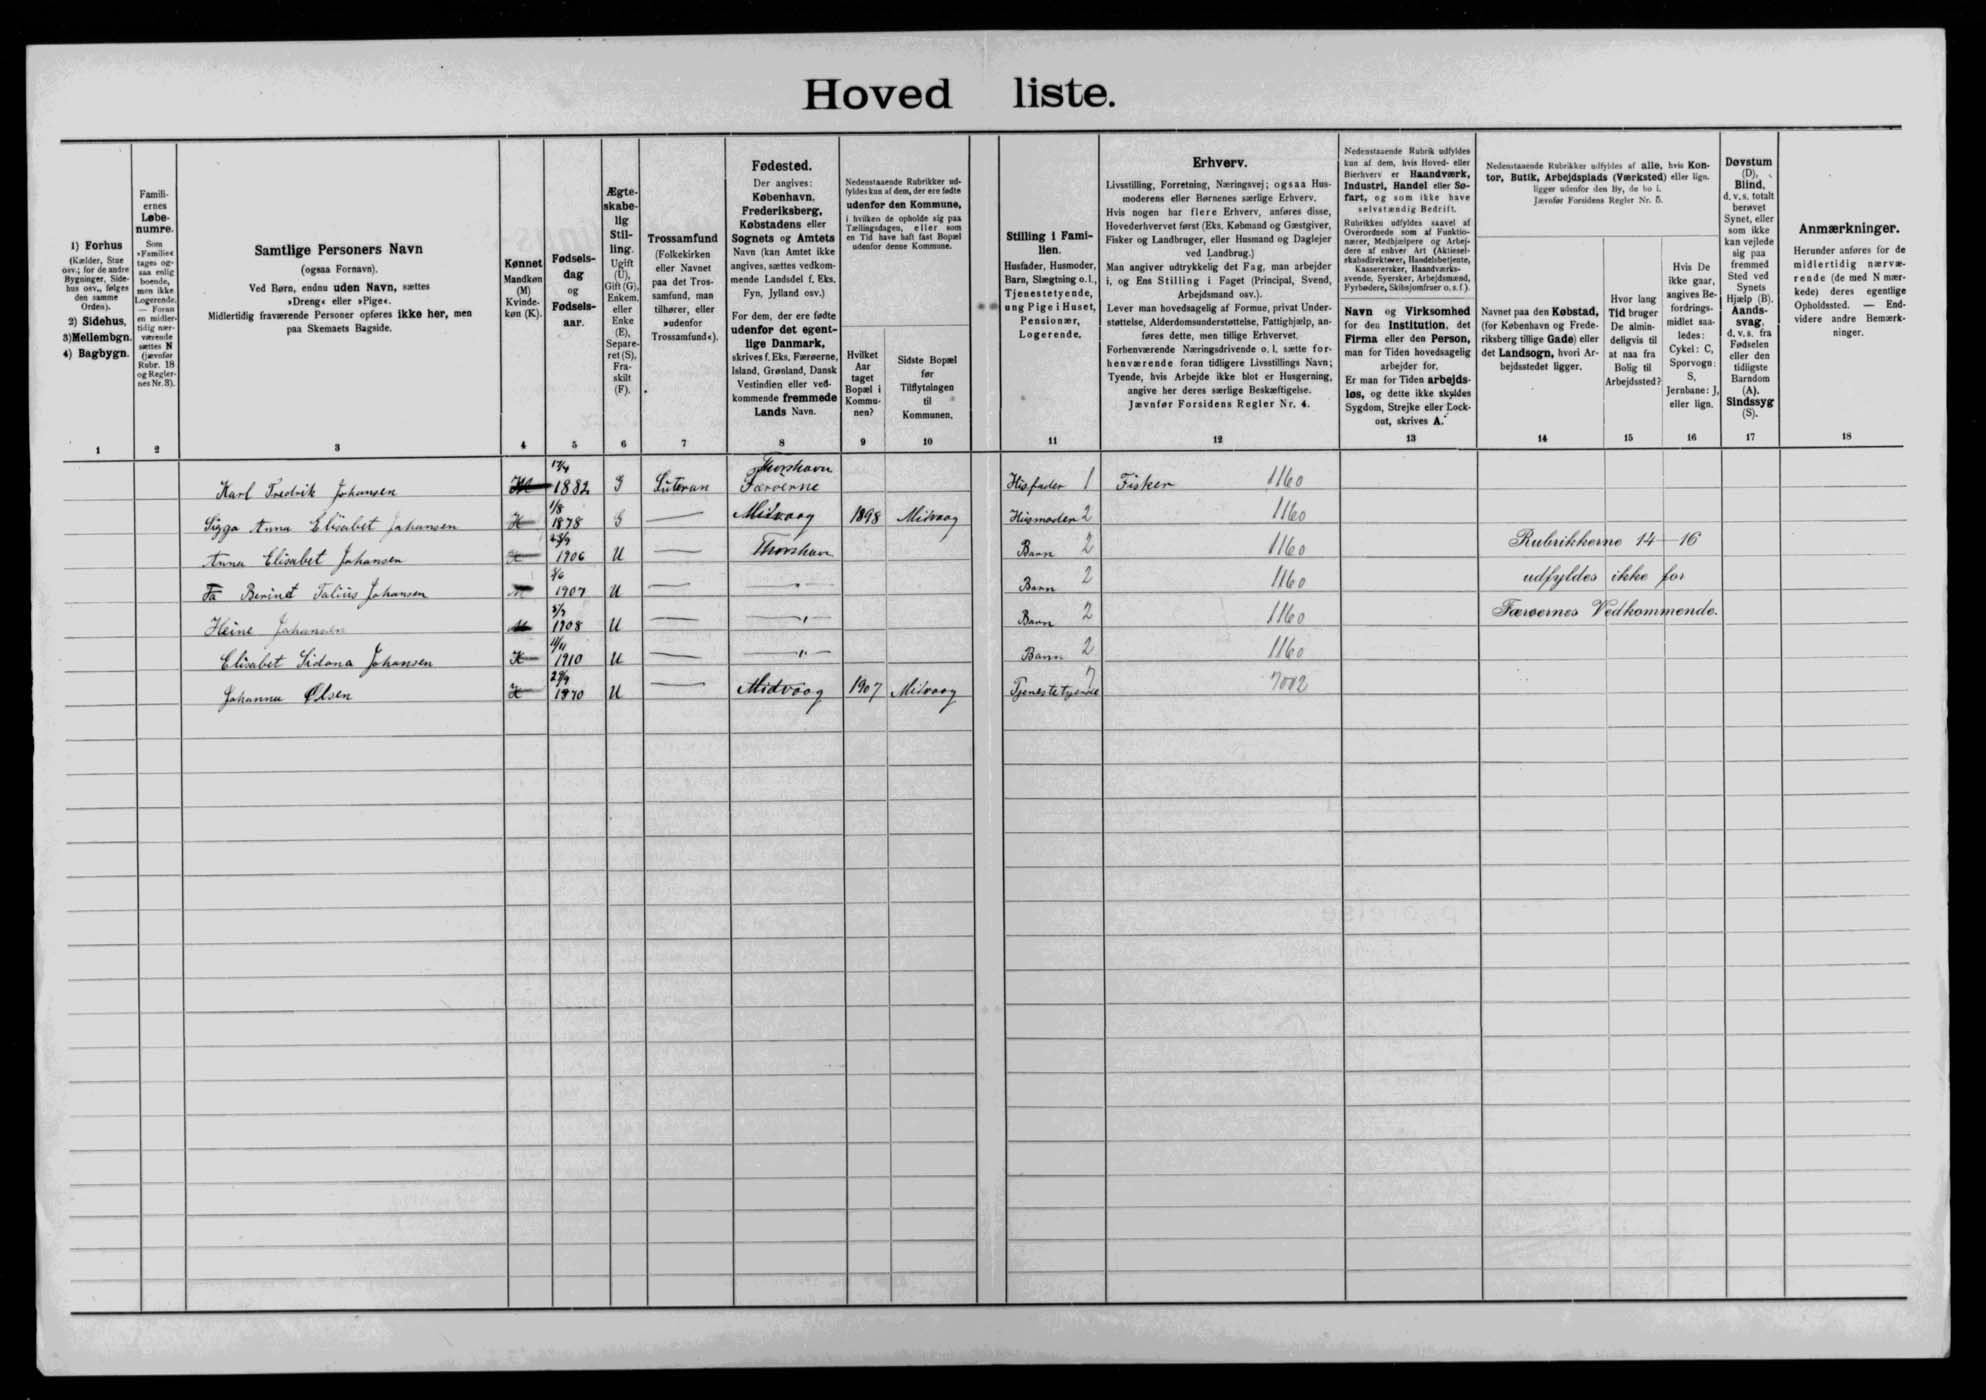 Hoved liste.
1) Forhus
(Kælder, Stue
osv.; for de andre
Bygninger, Side-
hus osv., følges
den samme
Orden).
2) Sidehus,
3) Mellembgn.
4) Bagbygn.
1
Famili-
ernes
Løbe-
numre.
Som
»Familie«
tages og-
saa enlig
boende,
men ikke
Logerende.
— Foran
en midler-
tidig nær-
værende
sættes N
(jævnfør
Rubr. 18
og Regler-
nes Nr. 3).
2
Samtlige Personers Navn
(ogsaa Fornavn).
Ved Børn, endnu uden Navn, sættes
»Dreng« eller »Pige«.
Midlertidig fraværende Personer opføres ikke her, men
paa Skemaets Bagside.
3
Kønnet
Mandkøn
(M)
Kvinde-
køn (K).
4
Fødsels-
dag
og
Fødsels-
aar.
5
Ægte-
skabe-
lig
Stil-
ling.
Ugift
(U),
Gift (G),
Enkem.
eller
Enke
(E),
Separe-
ret (S),
Fra-
skilt
(F).
6
Trossamfund
(Folkekirken
eller Navnet
paa det Tros-
samfund, man
tilhører, eller
»udenfor
Trossamfund«).
7
Fødested.
Der angives:
København,
Frederiksberg,
Købstadens eller
Sognets og Amtets
Navn (kan Amtet ikke
angives, sættes vedkom-
mende Landsdel f. Eks.
Fyn, Jylland osv.)
For dem, der ere fødte
udenfor det egent-
lige Danmark,
skrives f. Eks. Færøerne,
Island, Grønland, Dansk
Vestindien eller ved-
kommende fremmede
Lands Navn.
8
Nedenstaaende Rubrikker ud-
fyldes kun af dem, der ere fødte
udenfor den Kommune,
i hvilken de opholde sig paa
Tællingsdagen, eller som
en Tid have haft fast Bopæl
udenfor denne Kommune.
Hvilket
Aar
taget
Bopæl i
Kommu-
nen?
9
Sidste Bopæl
før
Tilflytningen
til
Kommunen.
10
Stilling i Fami-
lien.
Husfader, Husmoder,
Barn, Slægtning o.l.,
Tjenestetyende,
ung Pige i Huset,
Pensionær,
Logerende.
11
Erhverv.
Livsstilling, Forretning, Næringsvej; ogsaa Hus-
moderens eller Børnenes særlige Erhverv.
Hvis nogen har flere Erhverv, anføres disse,
Hovederhvervet først (Eks. Købmand og Gæstgiver,
Fisker og Landbruger, eller Husmand og Daglejer
ved Landbrug.)
Man angiver udtrykkelig det Fag, man arbejder
i, og Ens Stilling i Faget (Principal, Svend,
Arbejdsmand osv.).
Lever man hovedsagelig af Formue, privat Under-
støttelse, Alderdomsunderstøttelse, Fattighjælp, an-
føres dette, men tillige Erhvervet.
Forhenværende Næringsdrivende o. l. sætte for-
henværende foran tidligere Livsstillings Navn;
Tyende, hvis Arbejde ikke blot er Husgerning,
angive her deres særlige Beskæftigelse.
Jævnfør Forsidens Regler Nr. 4.
12
Nedenstaaende Rubrik udfyldes
kun af dem, hvis Hoved- eller
Bierhverv er Haandværk,
Industri, Handel eller Sø-
fart, og som ikke have
selvstændig Bedrift.
Rubrikken udfyldes saavel af
Overordnede som af Funktio-
nærer, Medhjælpere og Arbej-
dere af enhver Art (Aktiesel-
skabsdirektører, Handelsbetjente,
Kassererske, Haandværks-
svende, Syersker, Arbejdsmænd,
Fyrbødere, Skibsjomfruer o. s. f.).
Navn og Virksomhed
for den Institution, det
Firma eller den Person,
man for Tiden hovedsagelig
arbejder for.
Er man for Tiden arbejds-
løs, og dette ikke skyldes
Sygdom, Strejke eller Lock-
out, skrives A.
13
Nedenstaaende Rubrikker udfyldes af alle, hvis Kon-
tor, Butik, Arbejdsplads (Værksted) eller lign.
ligger udenfor den By, de bo i.
Jævnfør Forsidens Regler Nr. 5.
Navnet paa den Købstad,
(for København og Frede-
riksberg tillige Gade) eller
det Landsogn, hvori Ar-
bejdsstedet ligger.
14
Hvor lang
Tid bruger
De almin-
deligvis til
at naa fra
Bolig til
Arbejdssted?
15
Hvis De
ikke gaar,
angives Be-
fordrings-
midlet saa-
ledes:
Cykel: C,
Sporvogn:
S,
Jernbane: J,
eller lign.
16
Døvstum
(D),
Blind,
d. v. s. totalt
berøvet
Synet, eller
som ikke
kan vejlede
sig paa
fremmed
Sted ved
Synets
Hjælp (B).
Aands-
svag,
d. v. s. fra
Fødselen
eller den
tidligste
Barndom
(A).
Sindssyg
(S).
17
Anmærkninger.
Herunder anføres for de
midlertidig nærvæ-
rende (de med N mær-
kede) deres egentlige
Opholdssted. — End-
videre andre Bemærk-
ninger.
18
Karl Fredrik Johansen M 1882 G Luteran Thorshavn Færøerne Husfader 1 Fisker 1160
Sigga Anna Elisabet Johansen K 1/8 1878 G — Midvaag 1898 Midvaag Husmoder 2 1160
Anna Elisabet Johansen K 1906 U — Thorshavn Barn 2 1160
Berint Johansen M 1907 U — " Barn 2 1160
Heine Johansen M 1908 U — " Barn 2 1160
Elisabet Sidona Johansen K 1910 U — " Barn 2 1160
Johanna Olsen K 1870 U — Midvaag 1907 Midvaag Tjenestetyende 7 7002
Rubrikkerne 14—16
udfyldes ikke for
Færøernes Vedkommende.